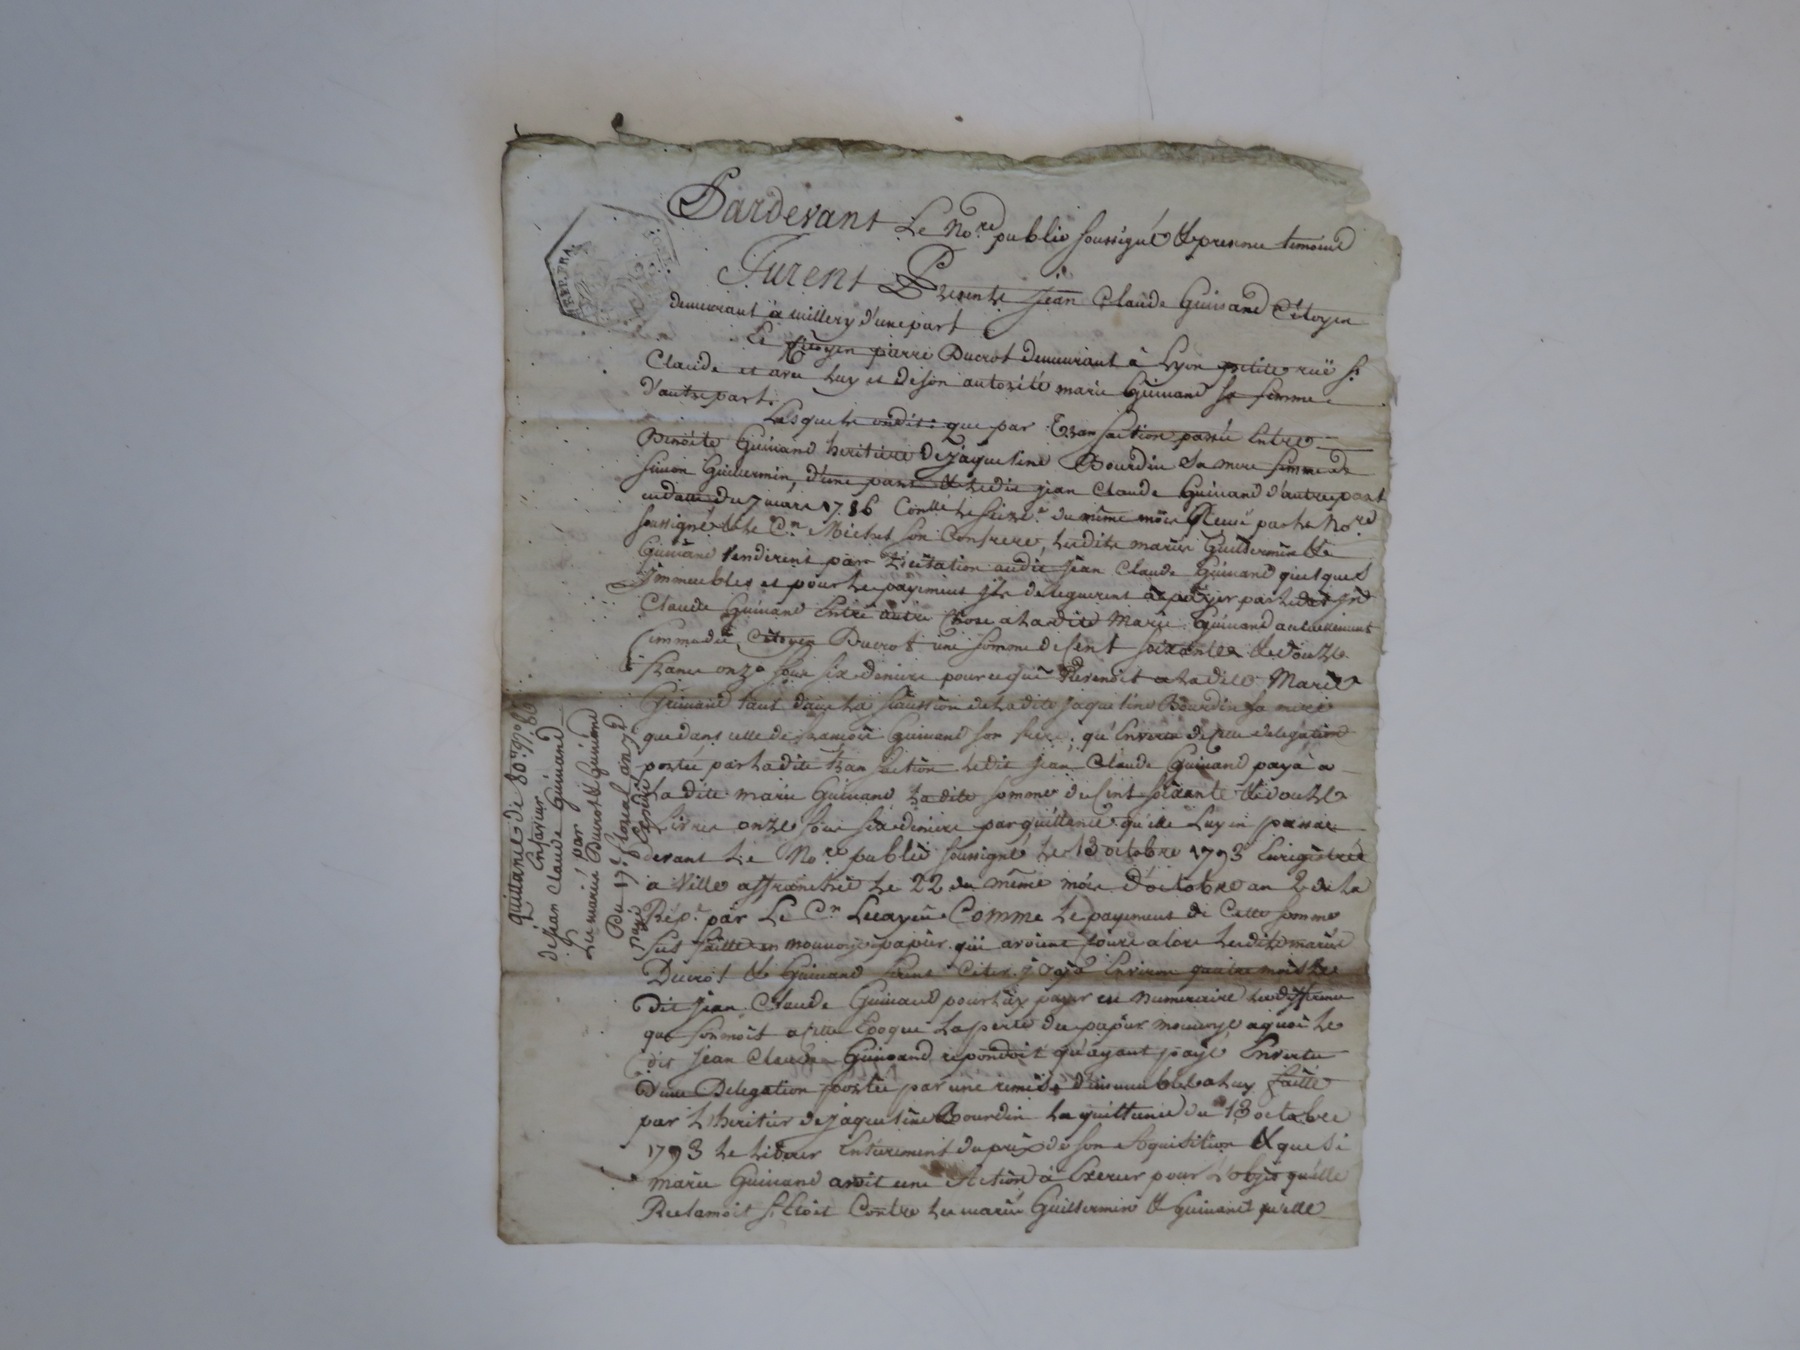 Pardevant Le No.re public soussigné & presence temoins
Furent Presents Jean Claude Guinand Citoyen
demeurant a millery d'une part
Le Citoyen pierre Ducrot demeurant à Lyon petite ruë St
Claude et avec luy et de son autorité marie Guinand sa femme
d'autre part.
Lesquels ont dit: que par Transaction passée Entre
Benoite Guinand heritiere de jaqueline Bourdin sa mere femme de
simon Guillermin, d'une part & ledit jean Claude Guinand d'autre part
en datte du 7 mars 1786 Conllé le seize du même mois Reçue par le No.re
soussigné & le Cn Michet son Confrere, lesdits mariés Guillermin &
Guinand vendirent par Licitation audit Jean Claude Guinand quelques
jmmeubles et pour le payement jls deleguerent à payer par ledit jean
Claude Guinand Entre autre Chose a la dite Marie Guinand actuellement
femme du Citoyen Ducrot une somme de Cent soixante & douze
francs onze sous six deniers pour ce qui Revenoit a la dite Marie
Guinand tant dans la succession de la dite jaqueline Bourdin sa mere
que dans celle de francois Guinand son frere, qu'En vertu de cette delegation
portée par la dite transaction ledit jean Claude Guinand paya a
la dite marie Guinand la dite somme de Cent soixante & douze
Livres onze sous six deniers par quittance qu'elle Luy en passa
devant Le No.re public soussigné le 13 octobre 1793 Enregistrée
a Ville affranchie le 22 du même mois d'octobre an 2 de la
Rép.e par Le Cn Lecayeu Comme le payement de Cette somme
fut faitte en monnoye papier qui avoient cours alors lesdits mariés
Ducrot & Guinand firent Citer jl y a Environ quatre mois le
dit jean Claude Guinand pour luy payer en numeraire la difference
que formoit a cette Epoque la perte du papier monnoye a quoi le
dit jean Claude Guinand repondoit qu'ayant payé En vertu
d'une Delegation portée par une remise d'immeubles a luy faitte
par L'heritier de jaqueline Bourdin la quittance du 13 octobre
1793 le liberer Entierement du prix de son Aquisition & que si
marie Guinand avoit une Action à Exercer pour L'objet qu'elle
Reclamoit s'Etoit Contre les mariés Guillermin & Guinand qu'elle
quittance de 80
En faveur
de jean Claude Guinand
par
Les mariés Ducrot & Guinand
Du 17e floreal an
REP. FRA.